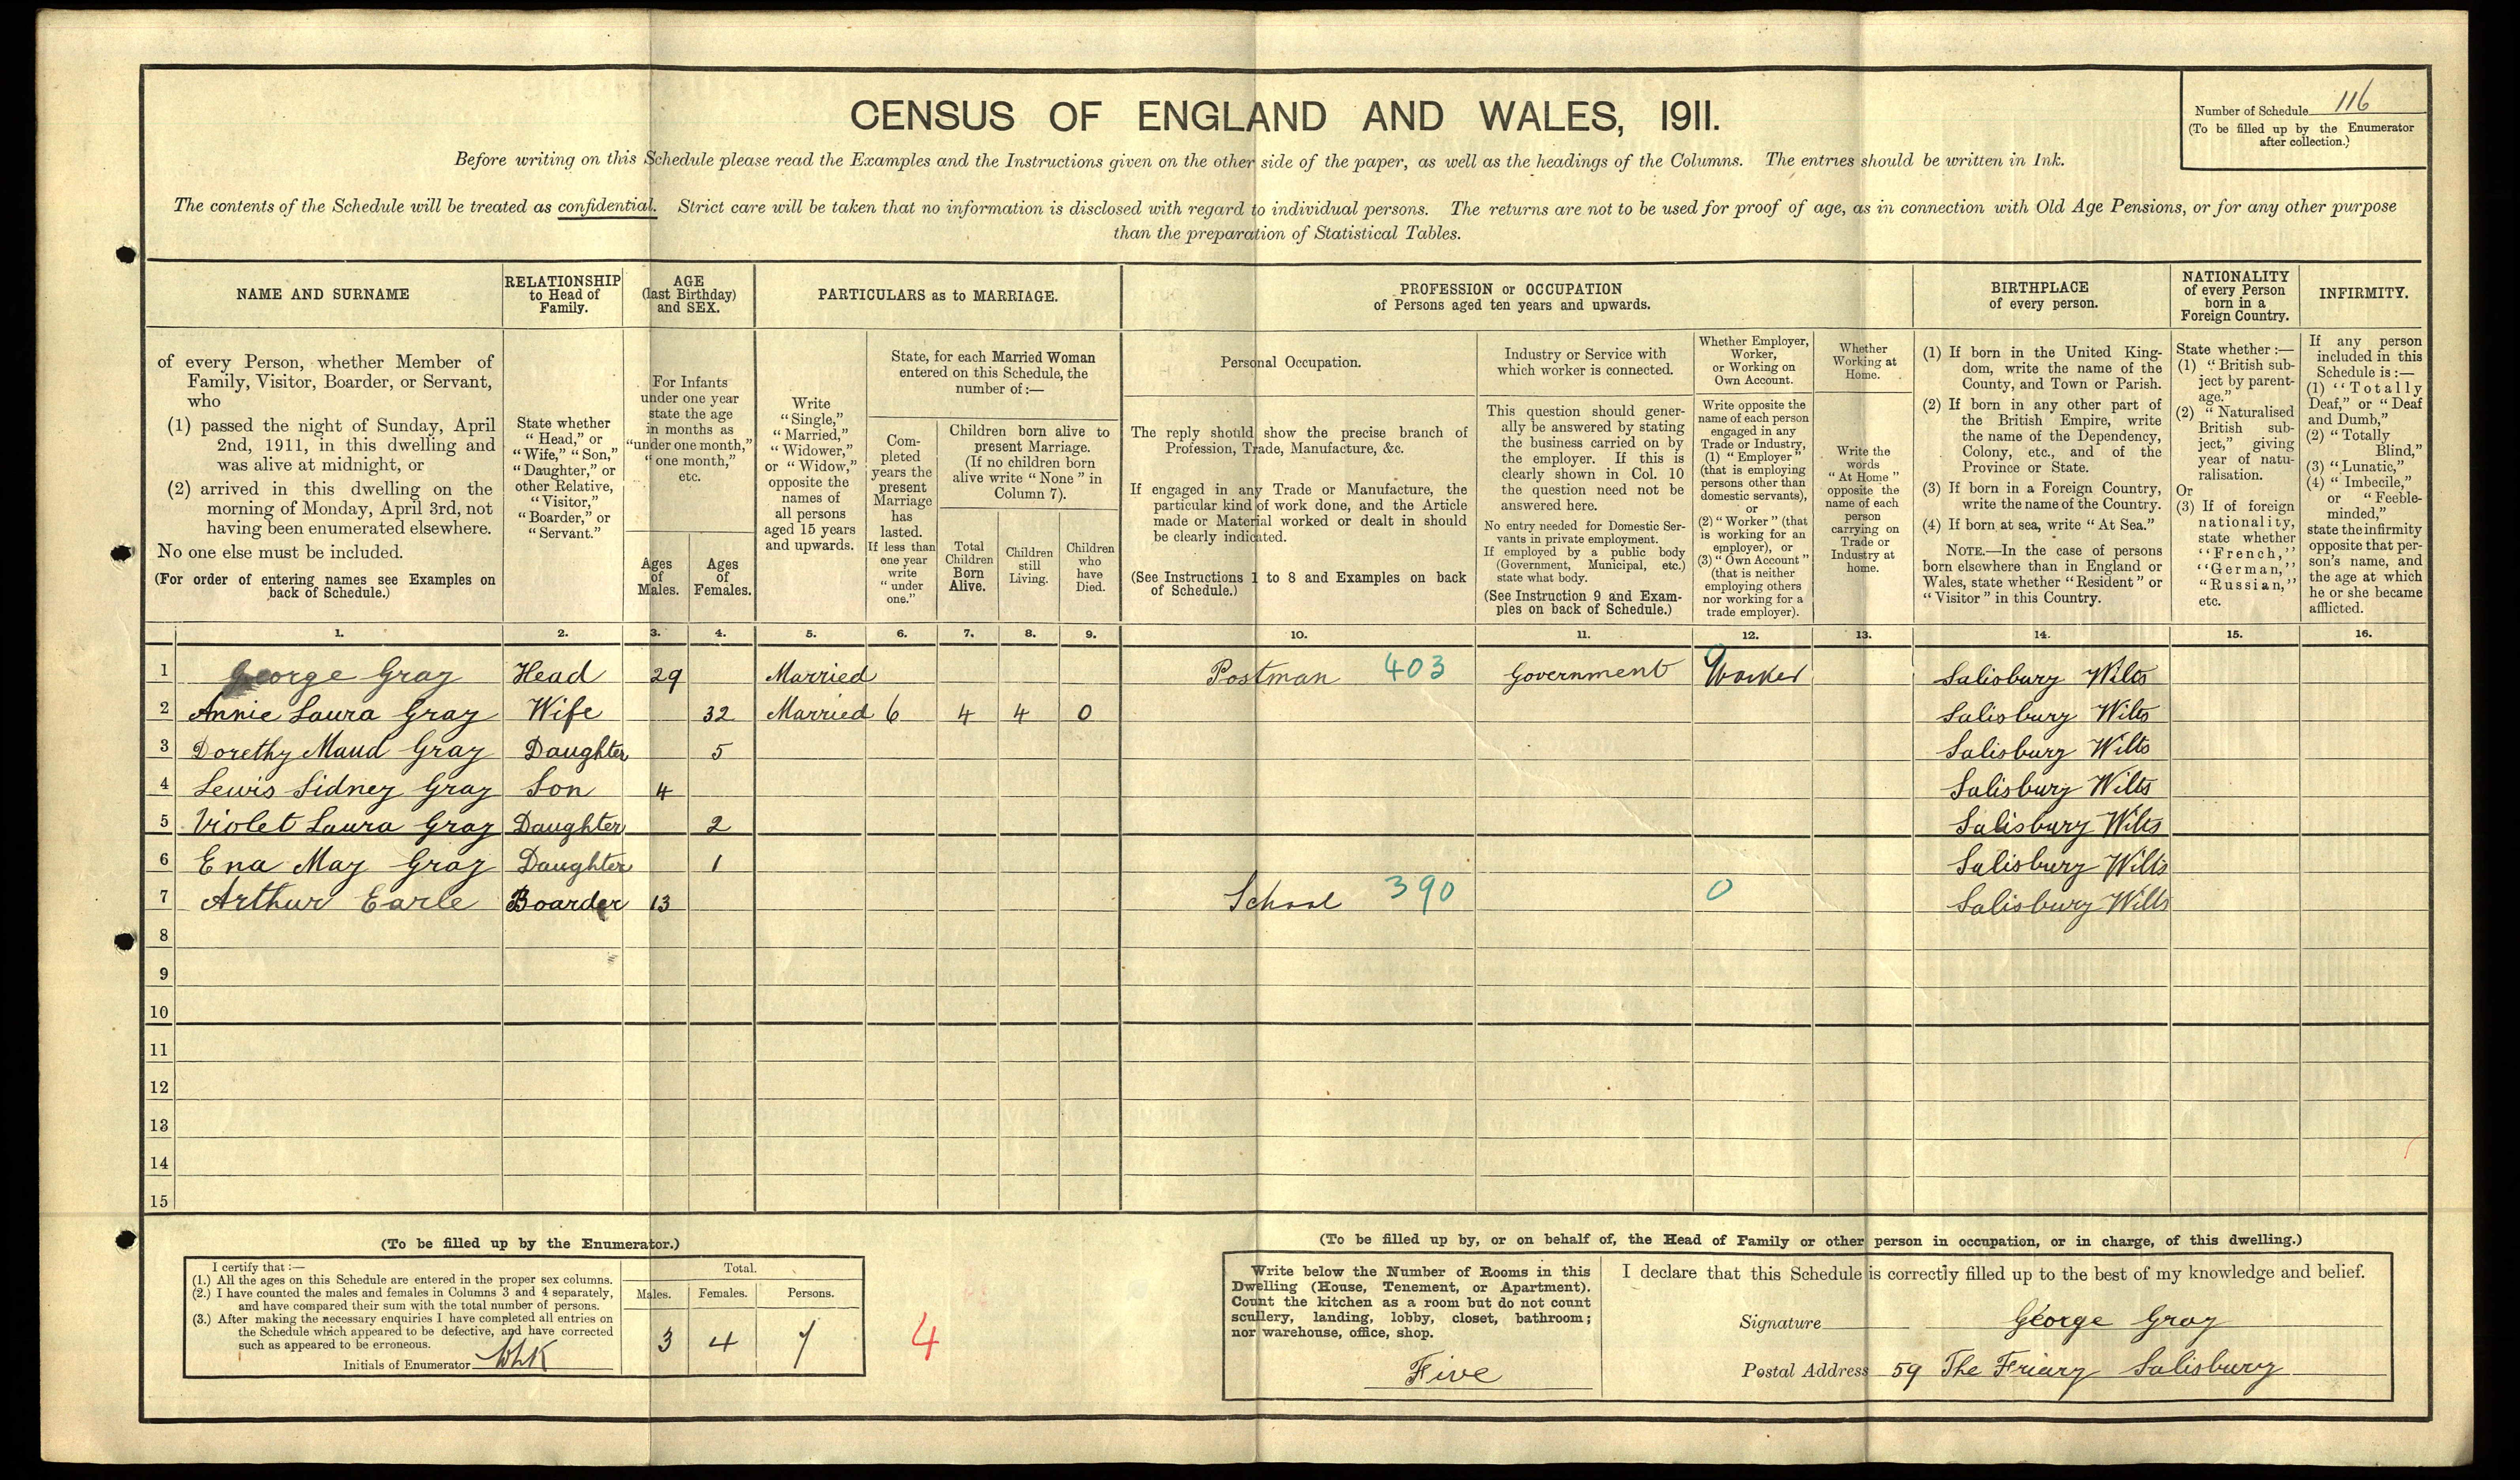 CENSUS OF ENGLAND AND WALES, 1911.
Number of Schedule 116
(To be filled up by the Enumerator
after collection.)
Before writing on this Schedule please read the Examples and the Instructions given on the other side of the paper, as well as the headings of the Columns. The entries should be written in Ink.
The contents of the Schedule will be treated as confidential. Strict care will be taken that no information is disclosed with regard to individual persons. The returns are not to be used for proof of age, as in connection with Old Age Pensions, or for any other purpose
than the preparation of Statistical Tables.
NAME AND SURNAME
of every Person, whether Member of
Family, Visitor, Boarder, or Servant,
who
(1) passed the night of Sunday, April
2nd, 1911, in this dwelling and
was alive at midnight, or
(2) arrived in this dwelling on the
morning of Monday, April 3rd, not
having been enumerated elsewhere.
No one else must be included.
(For order of entering names see Examples on
back of Schedule.)
RELATIONSHIP
to Head of
Family.
State whether
"Head," or
"Wife," "Son,"
"Daughter," or
other Relative,
"Visitor,"
"Boarder," or
"Servant."
AGE
(last Birthday)
and SEX.
For Infants
under one year
state the age
in months as
"under one month,"
"one month,"
etc.
Ages
of
Males.
Ages
of
Females.
PARTICULARS as to MARRIAGE.
Write
"Single,"
"Married,"
"Widower,"
or "Widow,"
opposite the
names of
all persons
aged 15 years
and upwards.
State, for each Married Woman
entered on this Schedule, the
number of:—
Com-
pleted
years the
present
Marriage
has
lasted.
If less than
one year
write
"under
one."
Children born alive to
present Marriage.
(If no children born
alive write "None" in
Column 7).
Total
Children
Born
Alive.
Children
still
Living.
Children
who
have
Died.
PROFESSION or OCCUPATION
of Persons aged ten years and upwards.
Personal Occupation.
The reply should show the precise branch of
Profession, Trade, Manufacture, &c.
If engaged in any Trade or Manufacture, the
particular kind of work done, and the Article
made or Material worked or dealt in should
be clearly indicated.
(See Instructions 1 to 8 and Examples on back
of Schedule.)
Industry or Service with
which worker is connected.
This question should gener-
ally be answered by stating
the business carried on by
the employer. If this is
clearly shown in Col. 10
the question need not be
answered here.
No entry needed for Domestic Ser-
vants in private employment.
If employed by a public body
(Government, Municipal, etc.)
state what body.
(See Instruction 9 and Exam-
ples on back of Schedule.)
Whether Employer,
Worker,
or Working on
Own Account.
Write opposite the
name of each person
engaged in any
Trade or Industry,
(1) "Employer"
(that is employing
persons other than
domestic servants),
or
(2) "Worker" (that
is working for an
employer), or
(3) "Own Account"
(that is neither
employing others
nor working for a
trade employer).
Whether
Working at
Home.
Write the
words
"At Home"
opposite the
name of each
person
carrying on
Trade or
Industry at
home.
BIRTHPLACE
of every person.
(1) If born in the United King-
dom, write the name of the
County, and Town or Parish.
(2) If born in any other part of
the British Empire, write
the name of the Dependency,
Colony, etc., and of the
Province or State.
(3) If born in a Foreign Country,
write the name of the Country.
(4) If born at sea, write "At Sea."
NOTE.—In the case of persons
born elsewhere than in England or
Wales, state whether "Resident" or
"Visitor" in this Country.
NATIONALITY
of every Person
born in a
Foreign Country.
State whether:—
(1) "British sub-
ject by parent-
age."
(2) "Naturalised
British sub-
ject," giving
year of natu-
ralisation.
Or
(3) If of foreign
nationality,
state whether
"French,"
"German,"
"Russian,"
etc.
INFIRMITY.
If any person
included in this
Schedule is:—
(1) "Totally
Deaf," or "Deaf
and Dumb,"
(2) "Totally
Blind,"
(3) "Lunatic,"
(4) "Imbecile,"
or "Feeble-
minded,"
state the infirmity
opposite that per-
son's name, and
the age at which
he or she became
afflicted.
1. 2. 3. 4. 5. 6. 7. 8. 9. 10. 11. 12. 13. 14. 15. 16.
1 George Gray Head 29 Married Postman 403 Government Worker Salisbury Wilts
2 Annie Laura Gray Wife 32 Married 6 4 4 0 Salisbury Wilts
3 Dorethy Maud Gray Daughter 5 Salisbury Wilts
4 Lewis Sidney Gray Son 4 Salisbury Wilts
5 Violet Laura Gray Daughter 2 Salisbury Wilts
6 Ena May Gray Daughter 1 Salisbury Wilts
7 Arthur Earle Boarder 13 School 390 0 Salisbury Wilts
8
9
10
11
12
13
14
15
(To be filled up by the Enumerator.)
I certify that:—
(1.) All the ages on this Schedule are entered in the proper sex columns.
(2.) I have counted the males and females in Columns 3 and 4 separately,
and have compared their sum with the total number of persons.
(3.) After making the necessary enquiries I have completed all entries on
the Schedule which appeared to be defective, and have corrected
such as appeared to be erroneous.
Initials of Enumerator WHK
Total.
Males. Females. Persons.
3 4 7
4
(To be filled up by, or on behalf of, the Head of Family or other person in occupation, or in charge, of this dwelling.)
Write below the Number of Rooms in this
Dwelling (House, Tenement, or Apartment).
Count the kitchen as a room but do not count
scullery, landing, lobby, closet, bathroom;
nor warehouse, office, shop.
Five
I declare that this Schedule is correctly filled up to the best of my knowledge and belief.
Signature George Gray
Postal Address 59 The Friary Salisbury